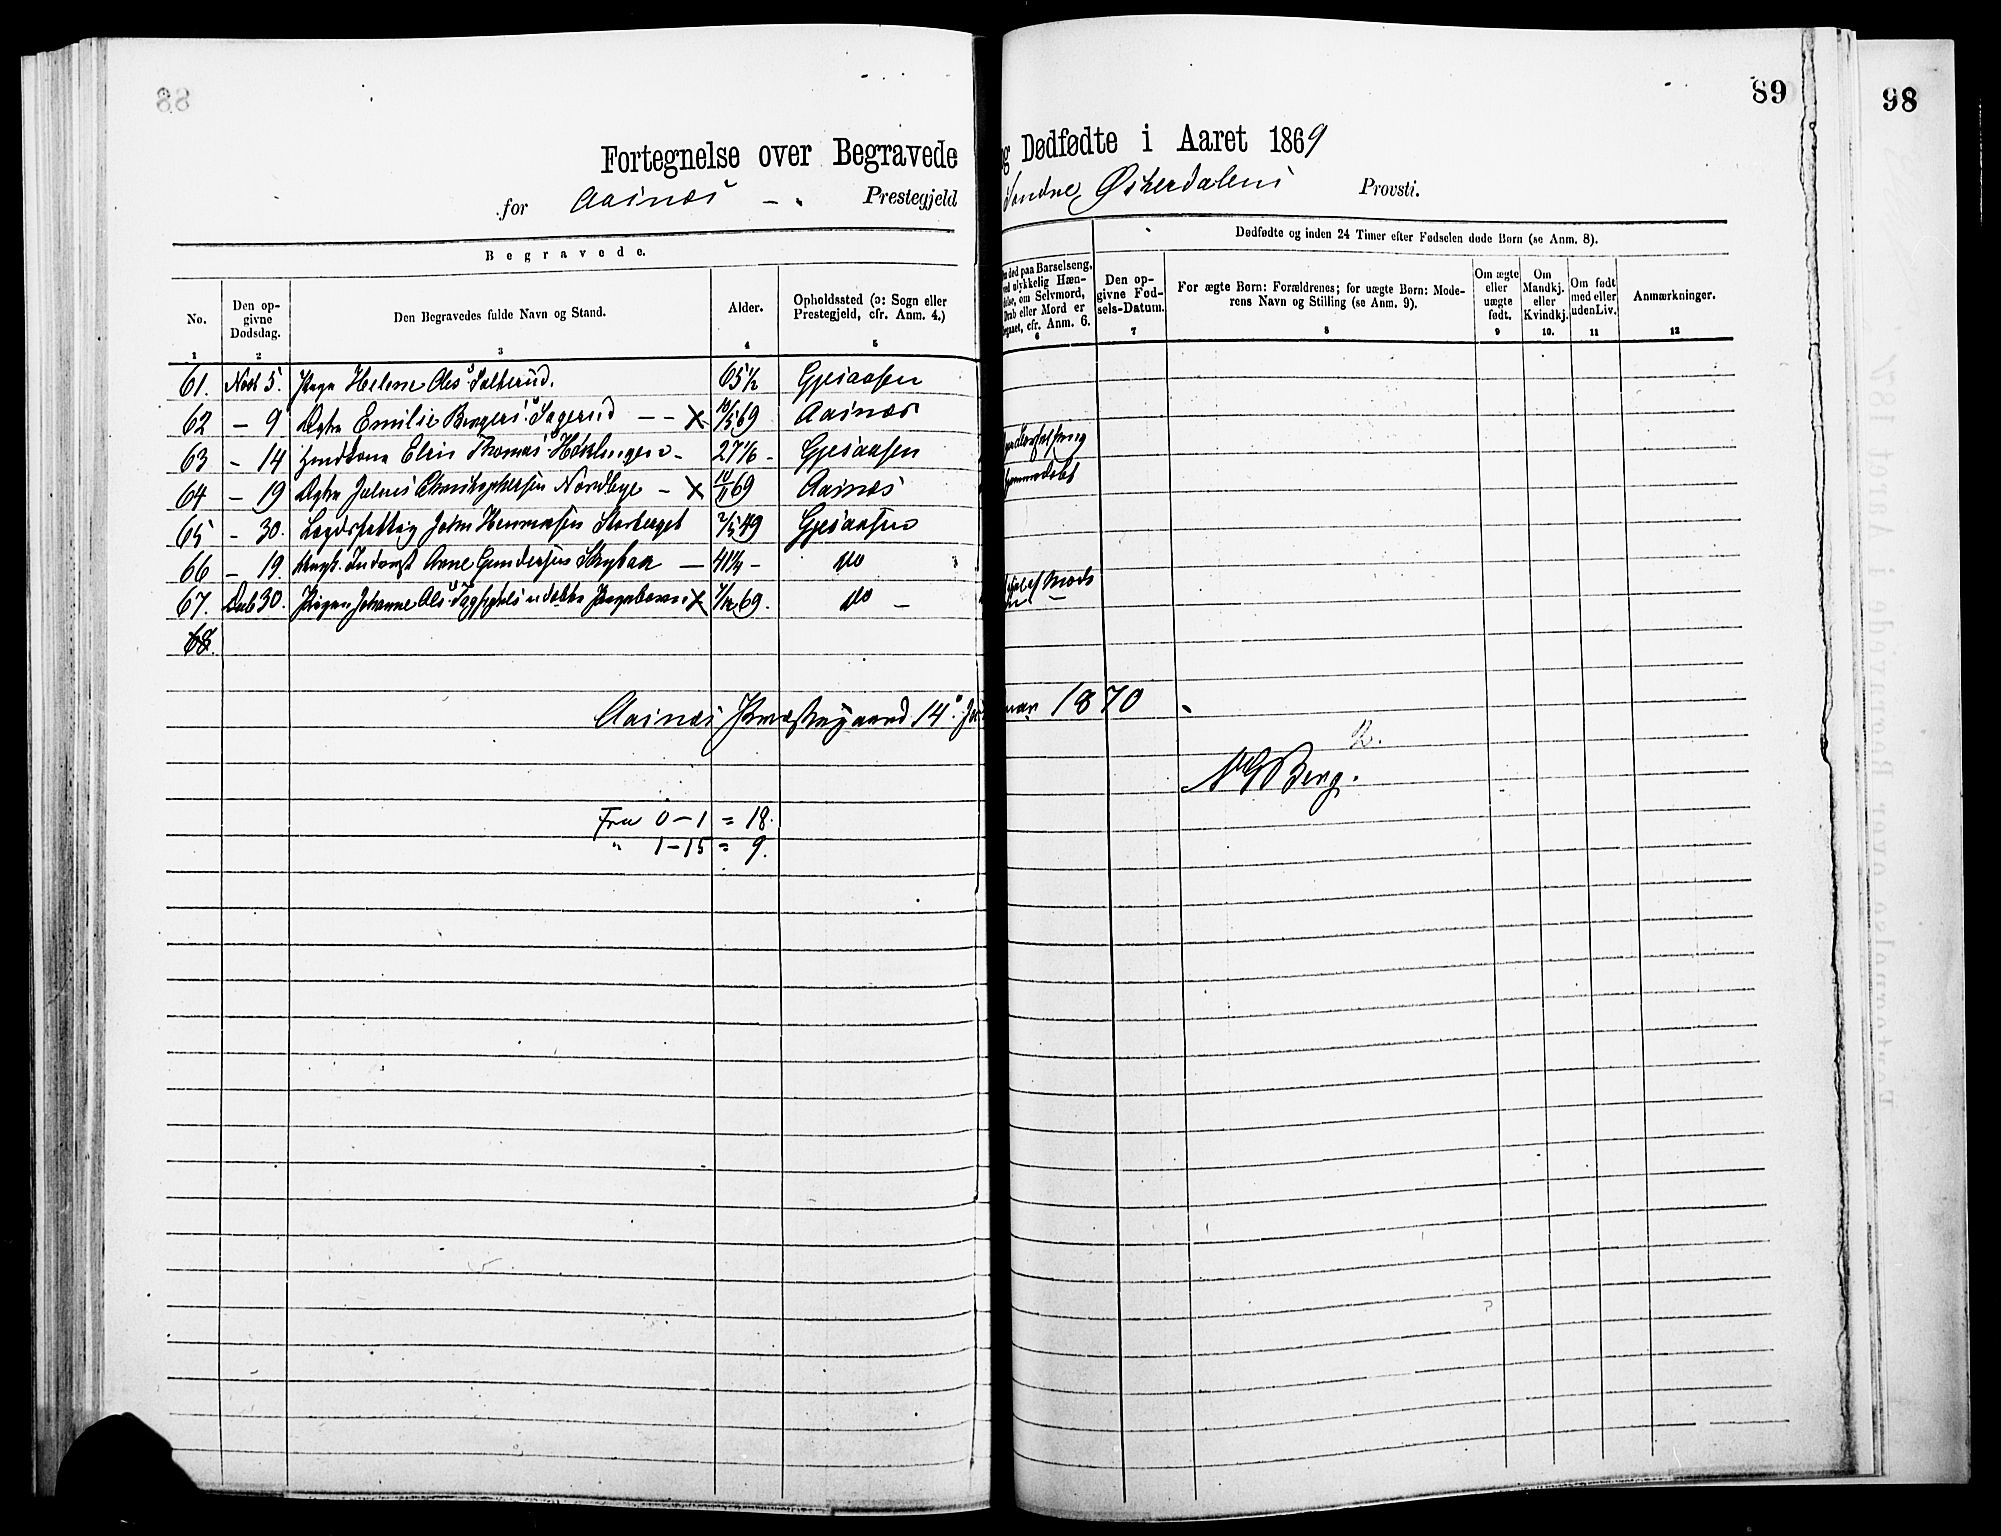 88
89
98
Fortegnelse over Begravede og Dødfødte i Aaret 1869
for Aasnæs Prestegjeld Søndre Østerdalens Provsti.
Begravede.
Dødfødte og inden 24 Timer efter Fødselen døde Børn (se Anm. 8).
No. 1
Den opgivne Dødsdag. 2
Den Begravedes fulde Navn og Stand. 3
Alder. 4
Opholdssted (ɔ: Sogn eller Prestegjeld, cfr. Anm. 4.) 5
død paa Barselseng, ved ulykkelig Hændelse, om Selvmord, Drab eller Mord er begaaet, cfr. Anm. 6. 6
Den opgivne Fødsels-Datum. 7
For ægte Børn: Forældrenes; for uægte Børn: Moderens Navn og Stilling (se Anm. 9). 8
Om ægte eller uægte født. 9
Om Mandkj. eller Kvindkj. 10.
Om født med eller uden Liv. 11
Anmærkninger. 12
61. Novb 5. Helene Ols 65½ Gjesaasen
62 – 9 Emilie Bergers Sagerud – – x 69 Aasnæs
63 – 14 Elen Thomas 27 Gjesaasen
64 – 19 Julius Christophersen Nordbye – x 69 Aasnæs
65 – 30. Storberget 49 Gjesaasen
66 – 19. Arne Gundersen – 41 – do
67. Decb 30. Johanne Ols x 69. do –
68.
Aasnæs Præstegaard 14. Januar 1870
Berg.
Fra 0–1 = 18.
" 1–15 = 9.